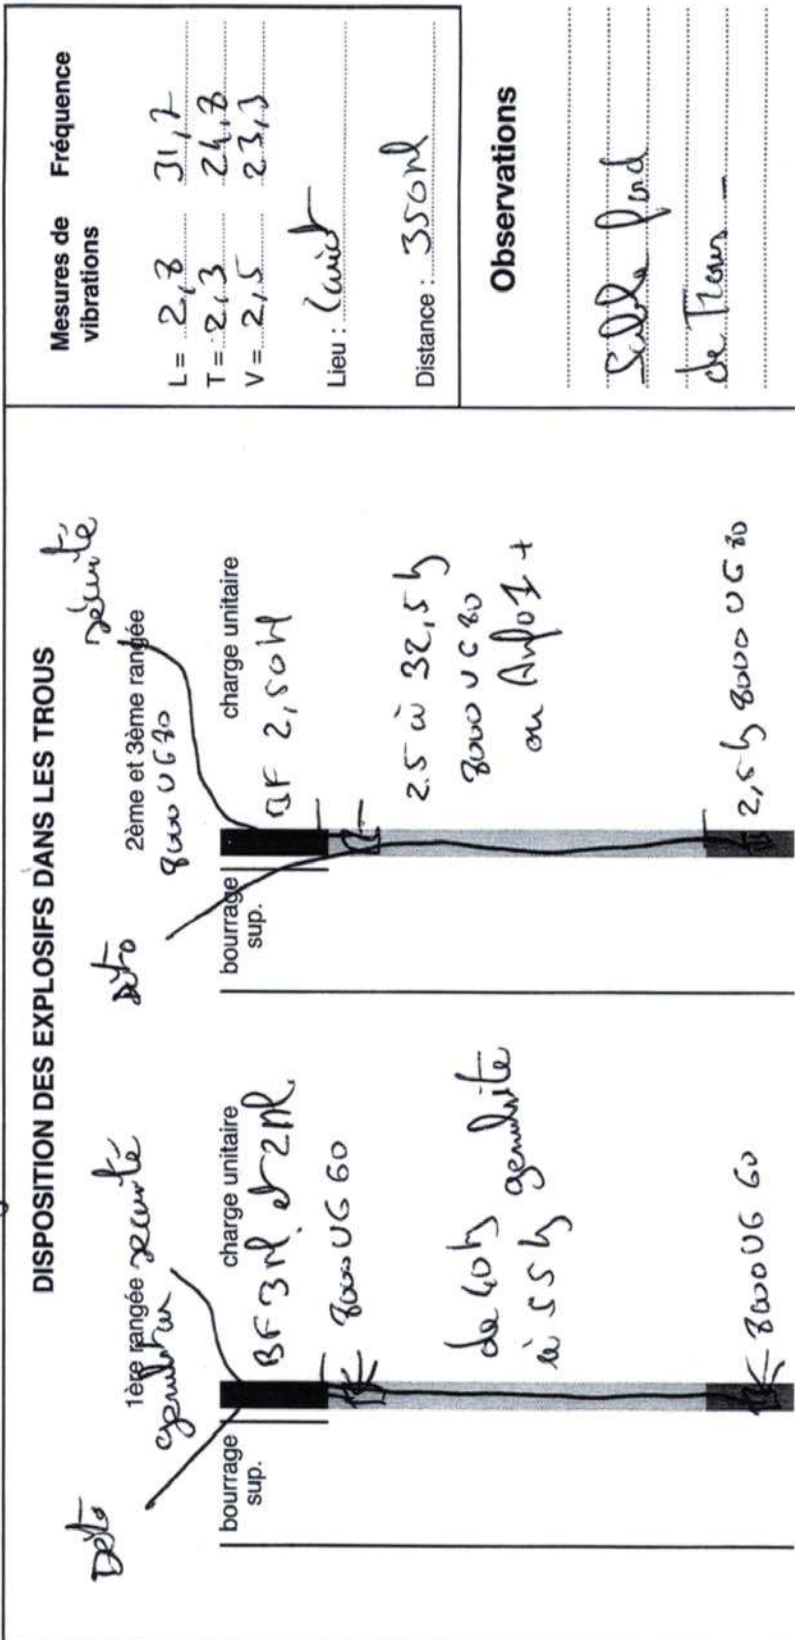 DISPOSITION DES EXPLOSIFS DANS LES TROUS
Déto
1ère rangée sécurité
bourrage
sup.
charge unitaire
BF 3M et 2M
8000 UG 60
de 40 kg
à 55 kg
8000 UG 60
Déto
sécurité
2ème et 3ème rangée
8000 UG 80
bourrage
sup.
charge unitaire
BF 2,50M
25 à 32,5 kg
8000 UG 80
ou Anfo 1 +
2,5 kg 8000 UG 80
Mesures de vibrations
Fréquence
L = 2,8 31,2
T = 2,3 24,8
V = 2,5 23,3
Lieu :
Distance : 350M
Observations
Sable fond
de Trous